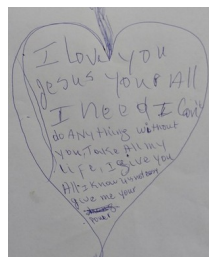 I love you
Jesus your All
I need I Can't
do Anything without
you, Take All my
Life, I give you
All I know
give me your
Power